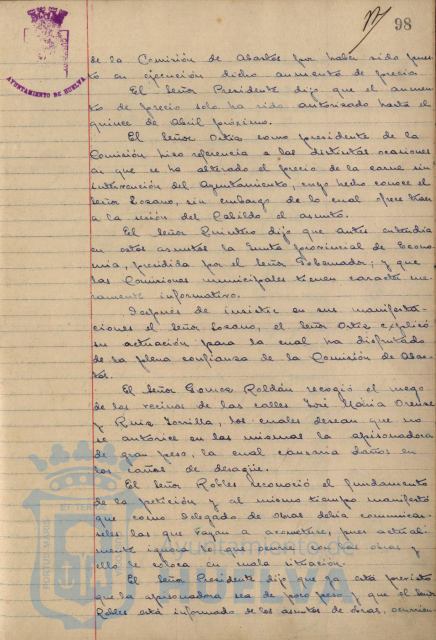 98
AYUNTAMIENTO DE HUELVA
de la Comisión de Abastos por haber sido pues-
to en ejecución dicho aumento de precio.
El Señor Presidente dijo que el aumen-
to de precio solo ha sido autorizado hasta el
quince de Abril próximo.
El Señor Ortiz como presidente de la
Comisión hizo referencia a las distintas ocasiones
en que se ha alterado el precio de la carne sin
intervención del Ayuntamiento, cuyo hecho conoce el
Señor Lozano, sin embargo de lo cual ofrece traer
a la sesión del Cabildo el asunto.
El Señor Quintero dijo que antes entendía
en estos asuntos la Junta provincial de Econo-
mía, presidida por el Señor Gobernador; y que
las Comisiones municipales tienen caracter me-
ramente informativo.
Después de insistir en sus manifesta-
ciones el Señor Lozano, el Señor Ortiz explicó
su actuación para la cual ha disfrutado
de la plena confianza de la Comisión de Abas-
tos.
El Señor Gomez Roldán recogió el ruego
de los vecinos de las calles José María
y Ruiz Zorrilla, los cuales desean que no
se autorice en las mismas la apisonadora
de gran peso, la cual causaría daños en
los caños de desagüe.
El Señor Robles reconoció el fundamento
de la petición y al mismo tiempo manifestó
que como Delegado de Obras debía comunicar-
seles las que vayan a acometerse, pues actual-
mente ignora lo que ocurre con las obras y
ello le coloca en mala situación.
El Señor Presidente dijo que ya está previsto
que la apisonadora sea de poco peso y que el Señor
Robles está informado de los asuntos de obras, ocurrien-